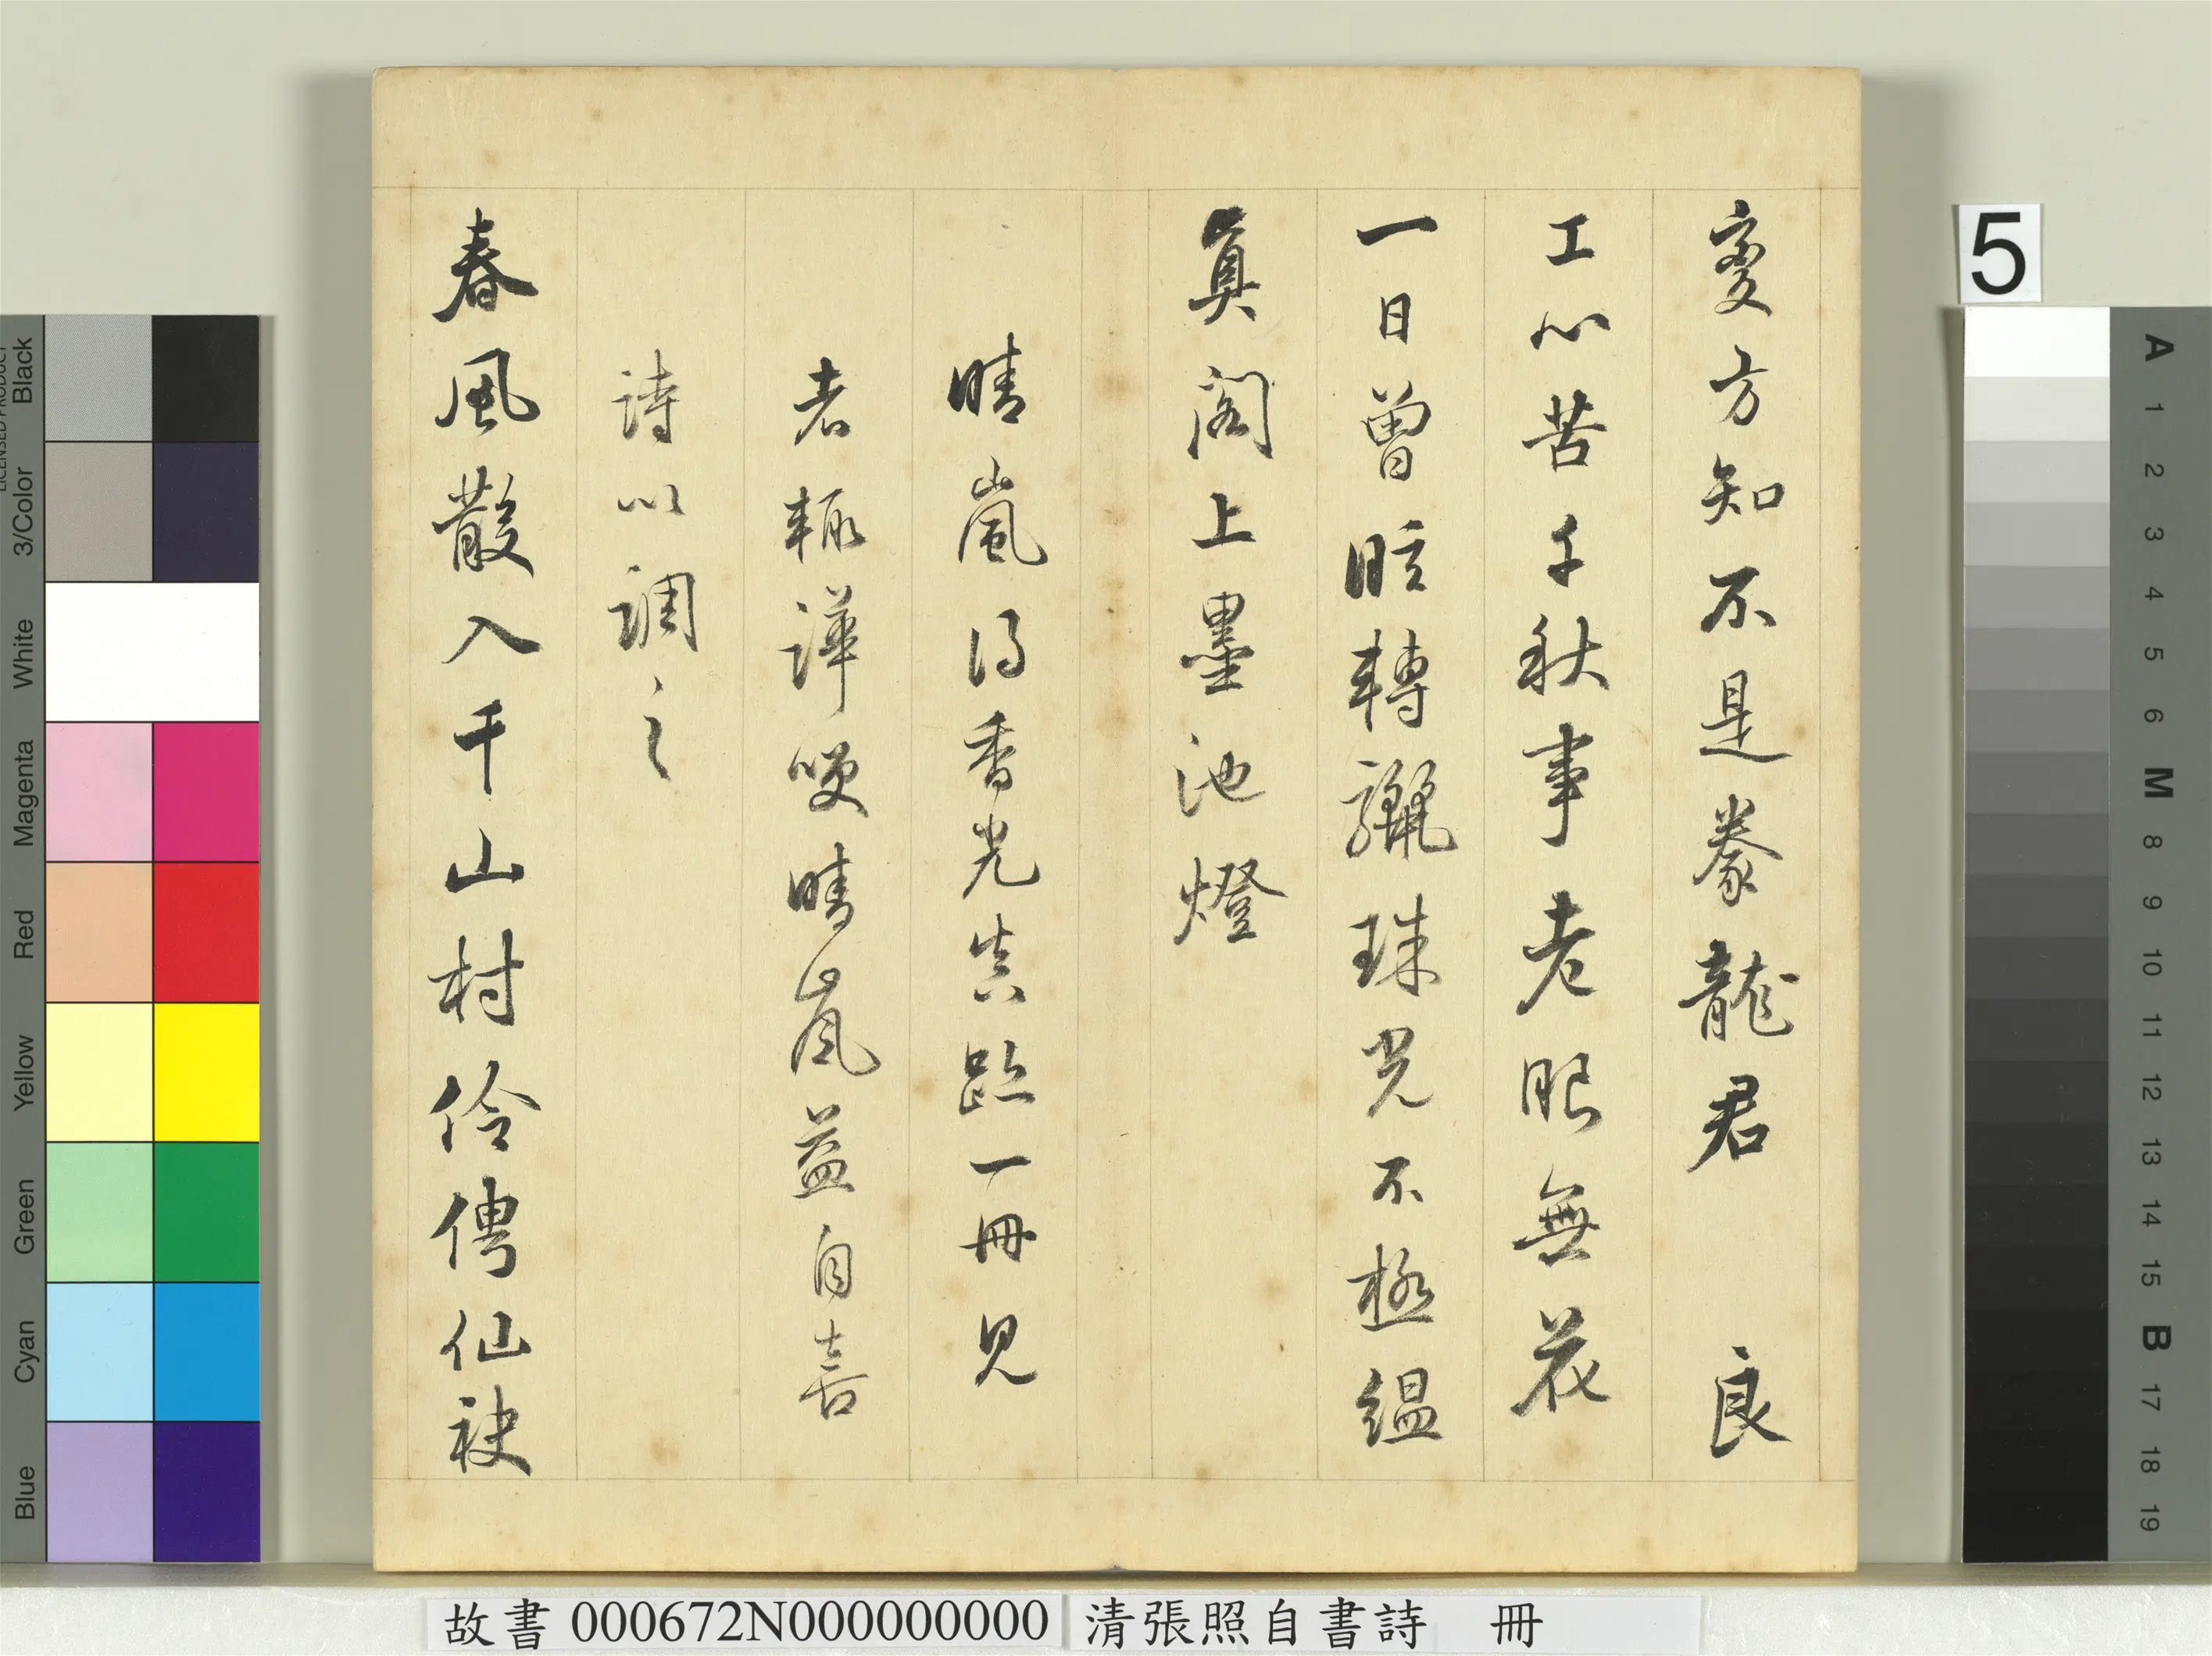 變方知不是豢龍君　良
工心苦千秋事老眼無花
一日曾眩轉驪珠光不極縕
真閣上墨池燈
晴嵐得香光真跡一冊見
者輒譁笑晴嵐益自喜
詩以調之
春風散入千山村伶俜仙袂
5
LICENSED PRODUCT
Black
3/Color
White
Magenta
Red
Yellow
Green
Cyan
Blue
A
1
2
3
4
5
6
M
8
9
10
11
12
13
14
15
B
17
18
19
故書 000672N000000000
清張照自書詩　冊